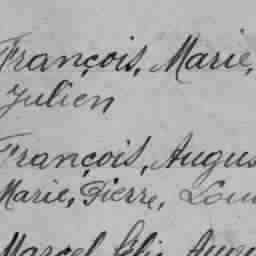 François, Marie,
Julien
François, Augus
Marie, Pierre, Loui
Marcel Elie Augu